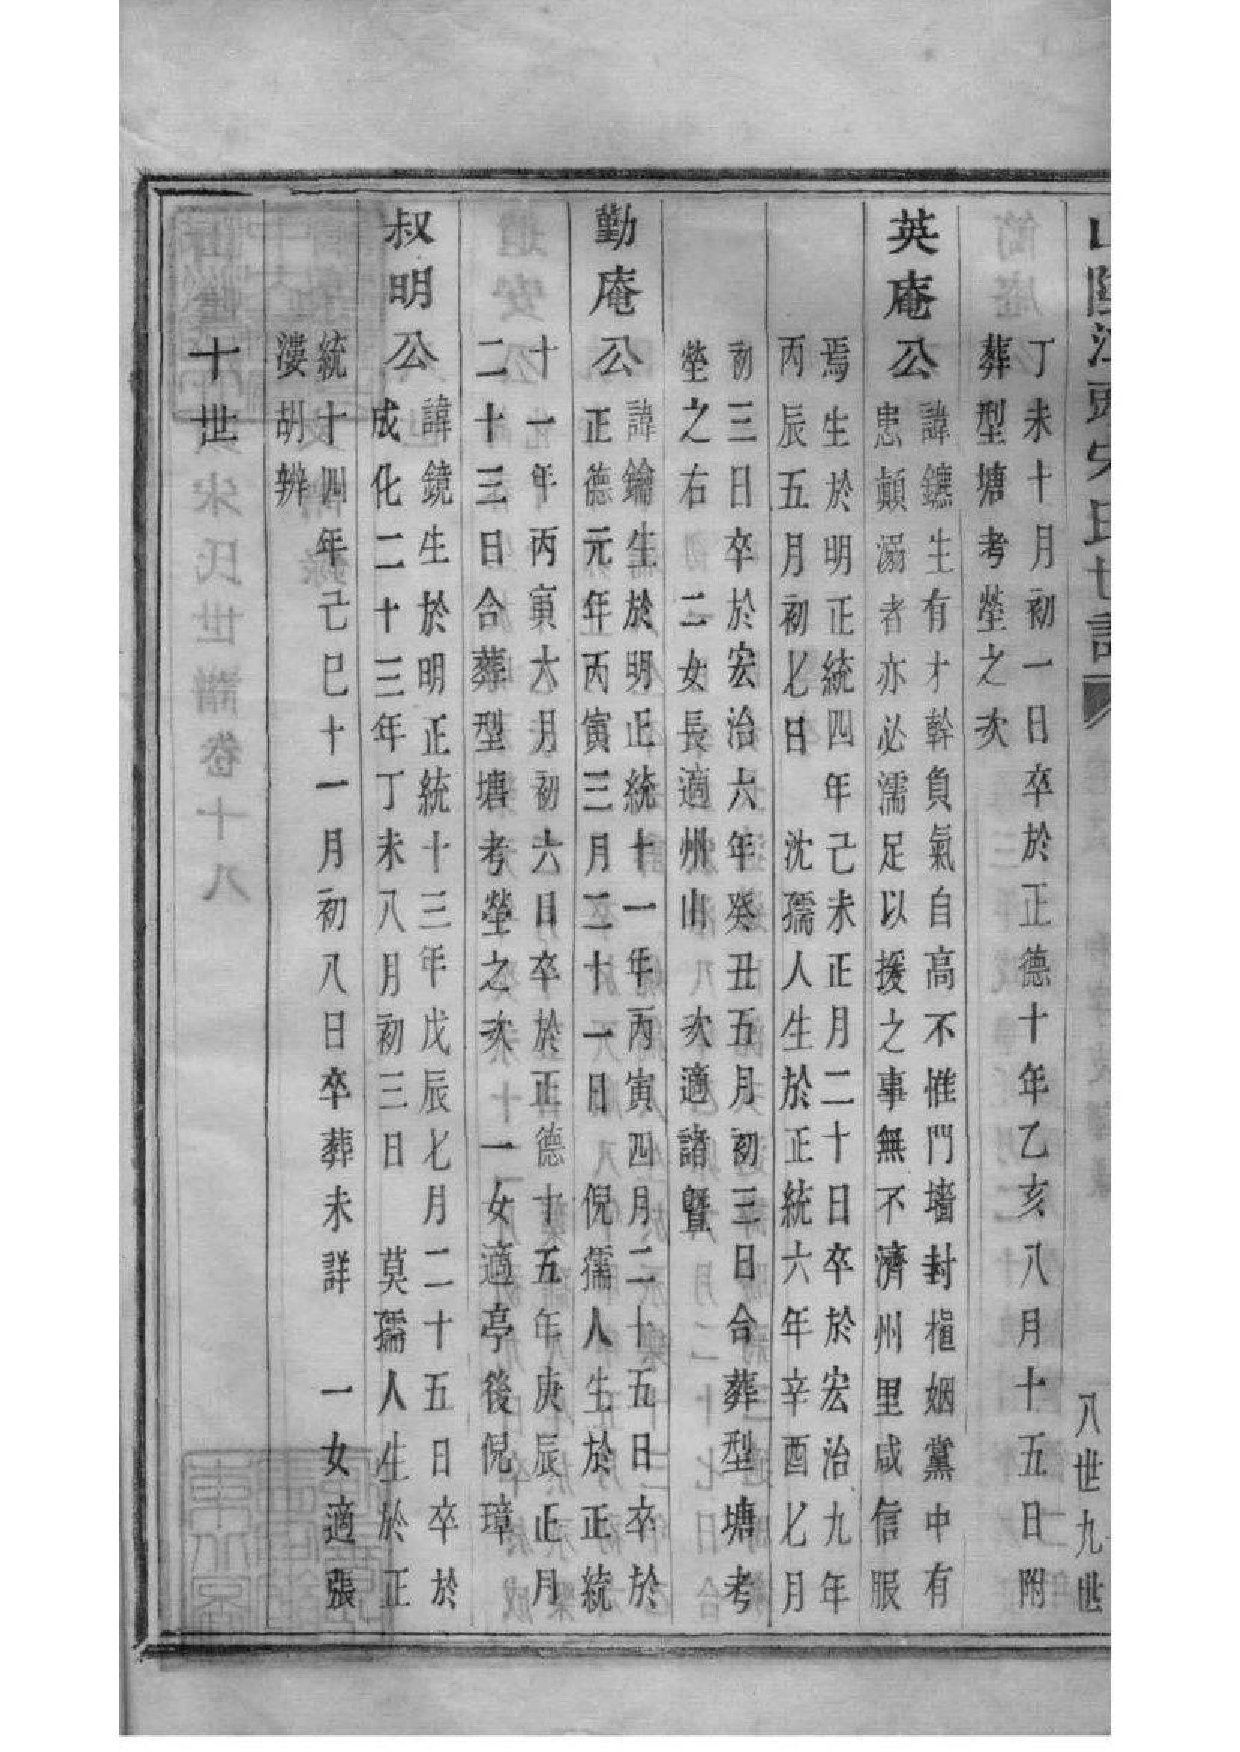 山陰江頭宋氏世譜
八世九世
丁未十月初一日卒於正德十年乙亥八月十五日附
葬型塘考塋之次
英庵公
諱鑣生有才幹負氣自高不惟門墻封植姻黨中有
患顛溺者亦必濡足以援之事無不濟州里咸信服
焉生於明正統四年己未正月二十日卒於宏治九年
丙辰五月初七日 沈孺人生於正統六年辛酉七月
初三日卒於宏治六年癸丑五月初三日合葬型塘考
塋之右 二女長適州山 次適諸暨
勤庵公
諱鑰生於明正統十一年丙寅四月二十五日卒於
正德元年丙寅三月二十一日 倪孺人生於正統
十一年丙寅六月初六日卒於正德十五年庚辰正月
二十三日合葬型塘考塋之次 一女適亭後倪璋
叔明公
諱鏡生於明正統十三年戊辰七月二十五日卒於
成化二十三年丁未八月初三日 莫孺人生於正
統十四年己巳十一月初八日卒葬未詳 一女適張
漊胡辨
十世